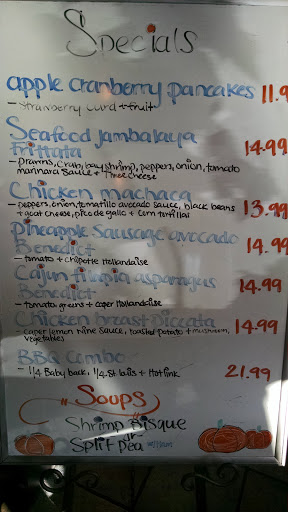 Specials
apple cranberry pancakes 11.9
- Strawberry curd + fruit
Seafood Jambalaya
Frittata 14.99
- prawns, crab, bay shrimp, peppers, onion, tomato
marinara sauce + Three cheese
Chicken machaca 13.99
- peppers, onion, tomatillo avocado sauce, black beans
+ goat cheese, pico de gallo + corn tortillas
Pineapple Sausage avocado
Benedict 14.99
- tomato + chipotle Hollandaise
Cajun tilapia asparagus
Benedict 14.99
- tomato, greens + caper Hollandaise
Chicken breast Piccata 14.99
- caper lemon wine sauce, roasted potato + mushroom,
vegetables
BBQ Combo 21.99
- 1/4 Baby back, 1/4 St. louis + Hotlink
Soups
Shrimp Bisque
or
Split Pea w/Ham